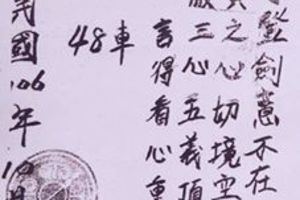 劍意不在
之心切境空
三心五義頂
言得看心重
48車
國106年10月